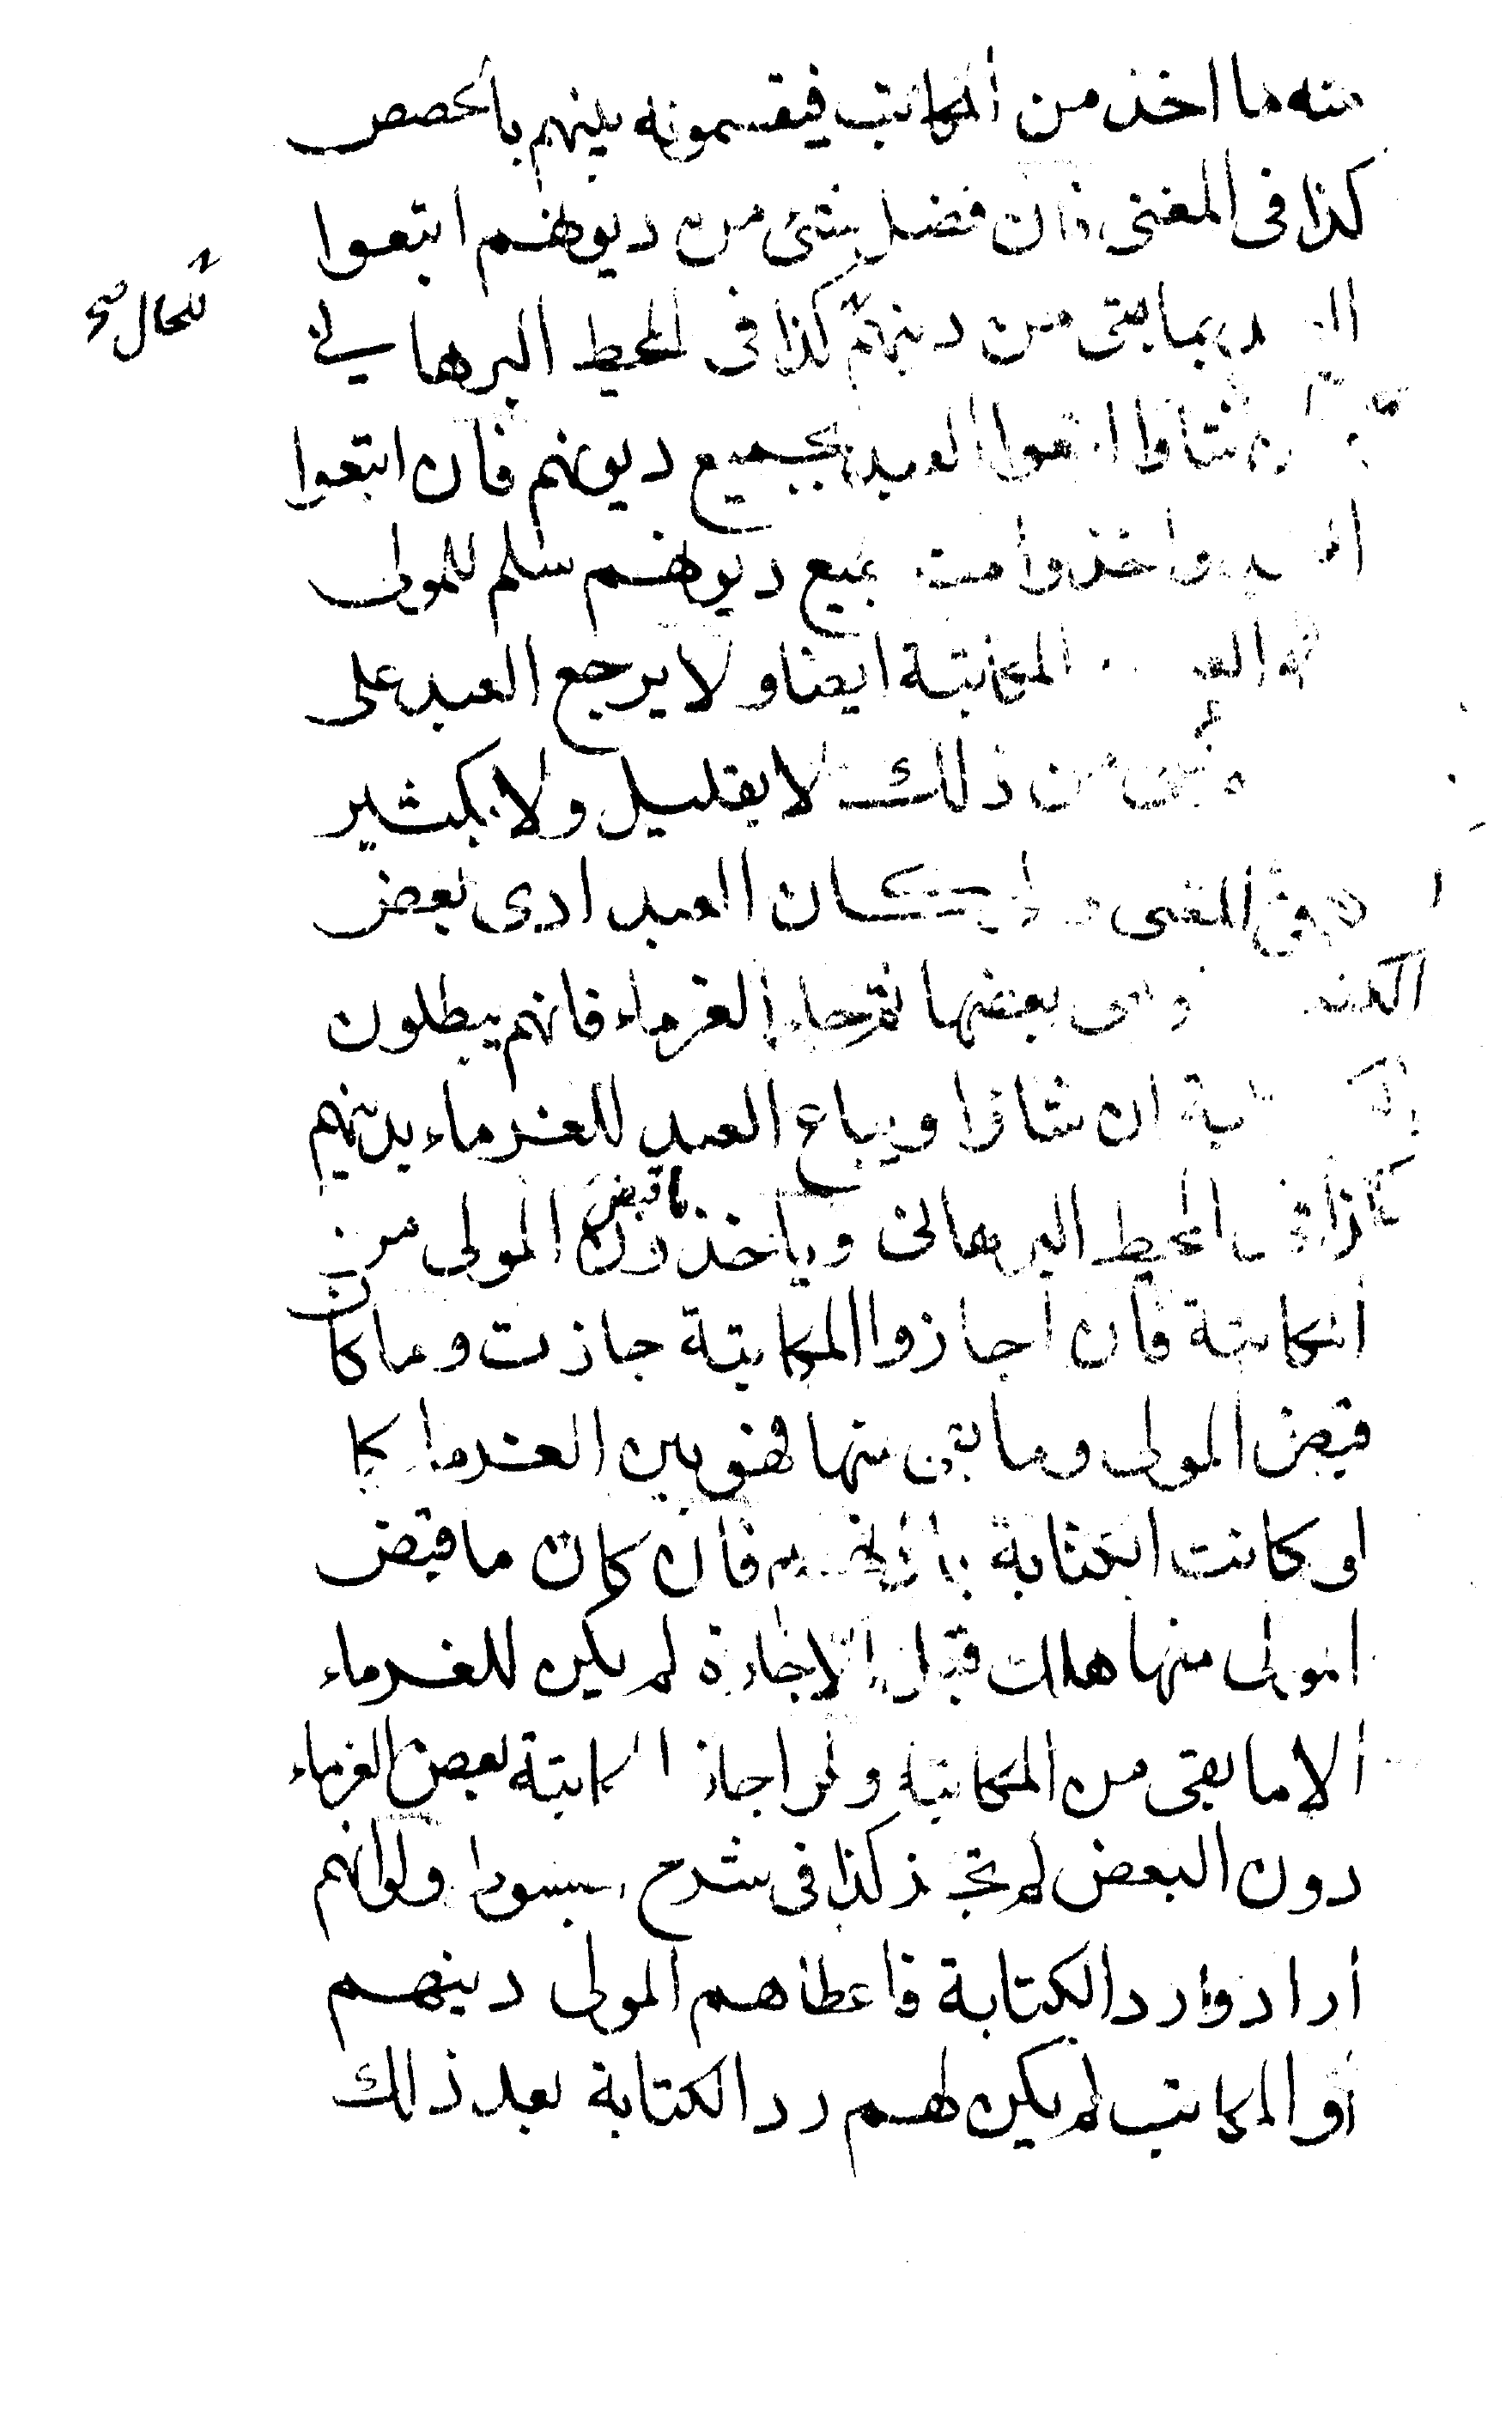 منه ما اخذ من المكاتب فيقسمونه بينهم بالحصص
كذا فى المغنى فان فضل شئ من ديونهم اتبعوا
بما بقى من دينهم كذا فى المحيط البرهانى
للحال صح
شاوا اتبعوا العبد بجميع ديونهم فان اتبعوا
واخذوا منه جميع ديونهم سلم للمولى
المكاتبة ايضا ولا يرجع العبد على
من ذلك لا بقليل ولا بكثير
فى المغنى ولو كان العبد ادى بعض
وبقى بعضها ثم جاء الغرماء فانهم يبطلون
ان شاؤا ويباع العبد للغرماء بدينهم
كذا فى المحيط البرهانى وياخذون ما قبض المولى من
المكاتبة فان اجازوا المكاتبة جازت وما كان
قبض المولى وما بقى منها فهو بين الغرماء كما
لو كانت الكتابة باذنهم فان كان ما قبض
المولى منها هلك قبل الاجازة لم يكن للغرماء
الا ما بقى من المكاتبة ولو اجاز المكاتبة بعض الغرماء
دون البعض لم تجز كذا فى شرح المبسوط ولو انهم
ارادوا رد الكتابة فاعطاهم المولى دينهم
او المكاتب لم يكن لهم رد الكتابة بعد ذلك